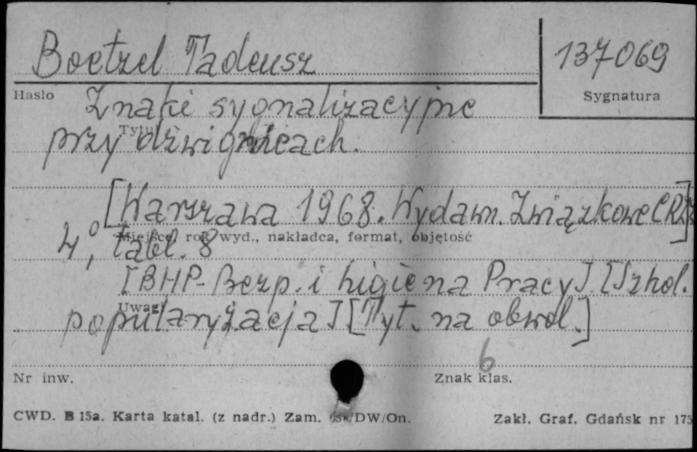 Boetzel Tadeusz
137069
Hasło
Sygnatura
Znaki sygnalizacyjne
Tytuł
przy dźwignicach.
[Warszawa 1968. Wydawn. Związkowe CRZZ]
Miejsce, rok wyd., nakładca, format, objętość
4°, tabl. 8
[BHP-Bezp. i higiena Pracy] [Szkol.
Uwagi
popularyzacja] [Tyt. na obwol.]
6
Nr inw.
Znak klas.
CWD. B 15a. Karta katal. (z nadr.) Zam. /DW/On.
Zakł. Graf. Gdańsk nr 173